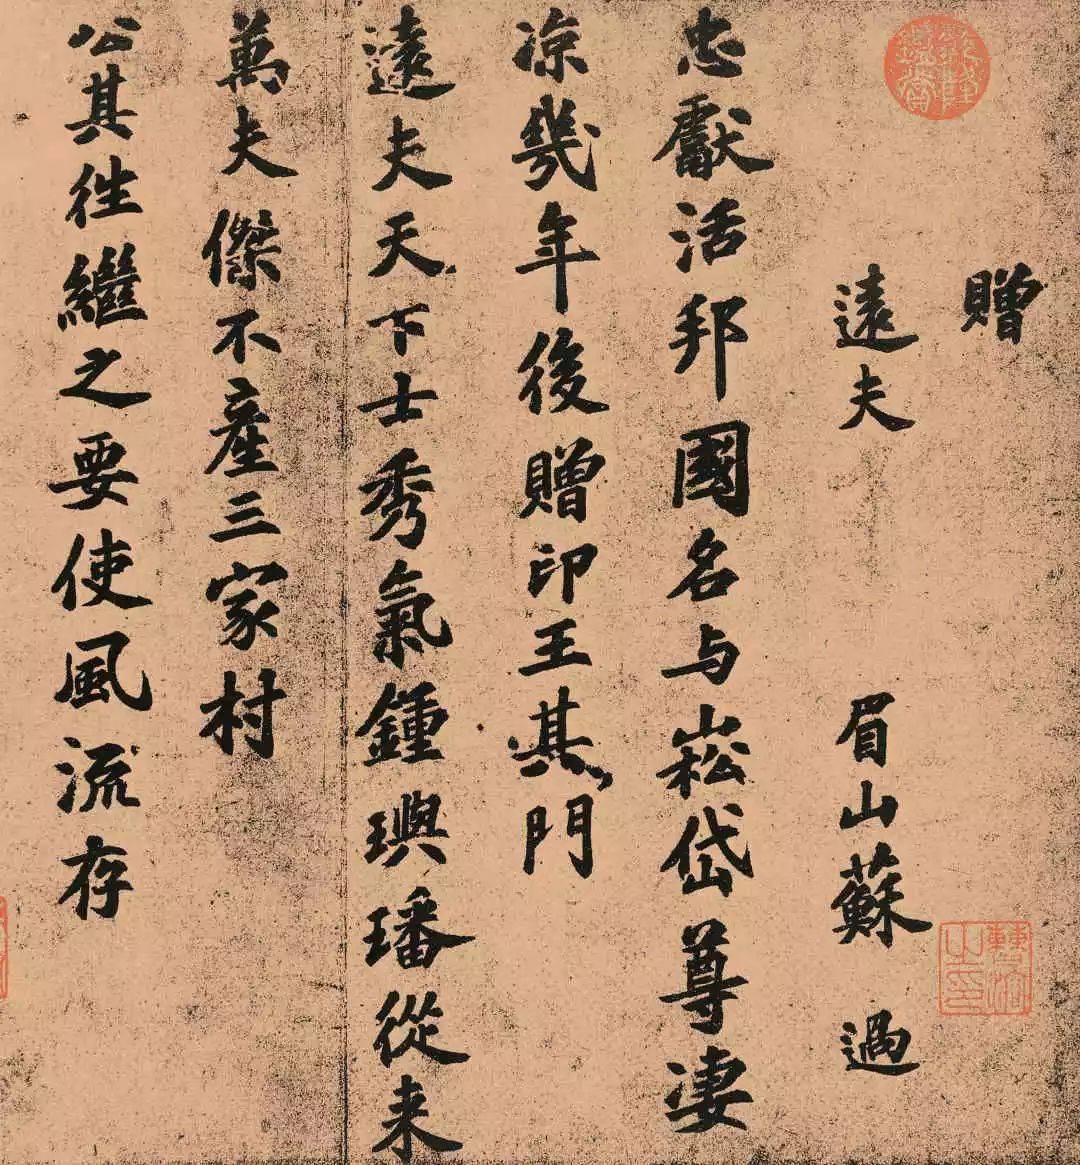 贈
遠夫 眉山蘇過
忠獻活邦國名与崧岱尊凄
凉幾年後贈印王其門
遠夫天下士秀氣鍾璵璠從来
萬夫傑不產三家村
公其往繼之要使風流存